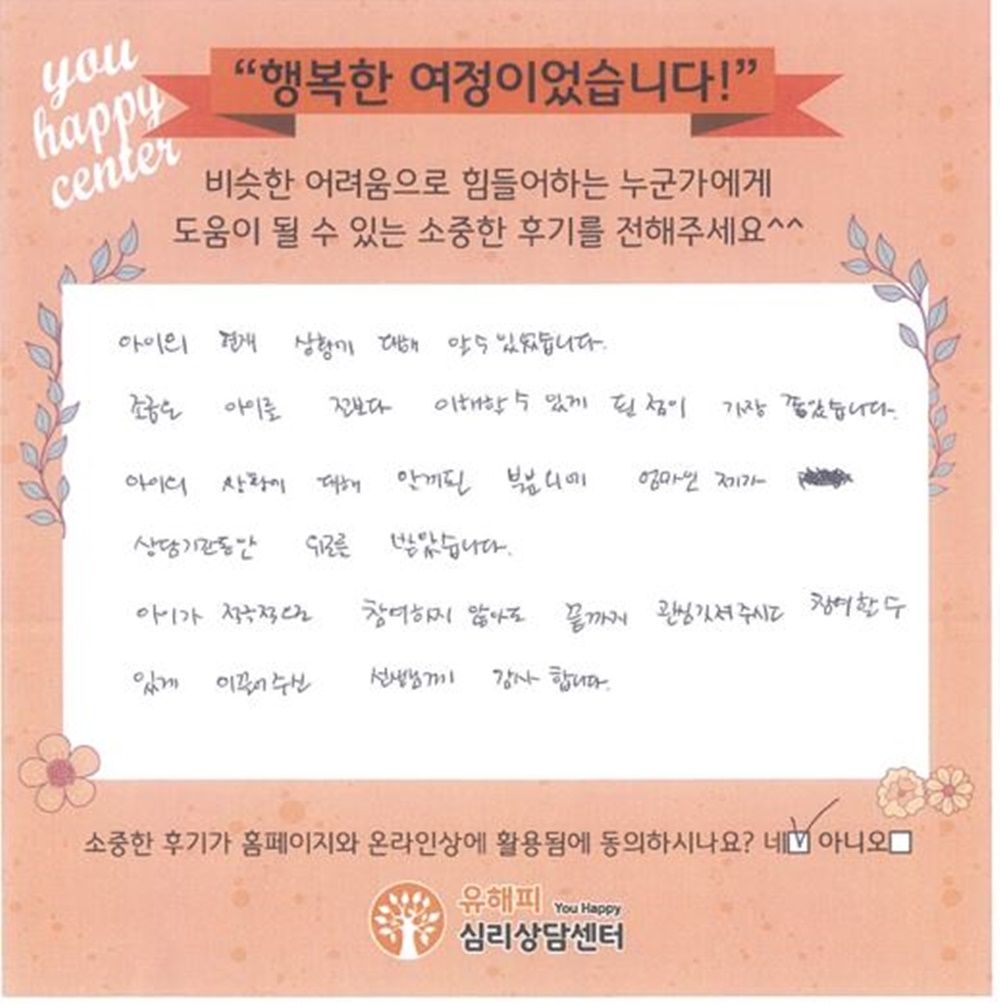 you
happy
center
“행복한 여정이었습니다!”
비슷한 어려움으로 힘들어하는 누군가에게
도움이 될 수 있는 소중한 후기를 전해주세요^^
아이의 현재 상황에 대해 알 수 있었습니다.
조금은 아이를 전보다 이해할 수 있게 된 점이 가장 좋았습니다.
아이의 상황에 대해 알게된 부분외에 엄마인 제가
상담기간동안 위로를 받았습니다.
아이가 적극적으로 참여하지 않아도 끝까지 관심가져주시고 참여할 수
있게 이끌어주신 선생님께 감사 합니다.
소중한 후기가 홈페이지와 온라인상에 활용됨에 동의하시나요? 네☑ 아니오☐
유해피 You Happy
심리상담센터